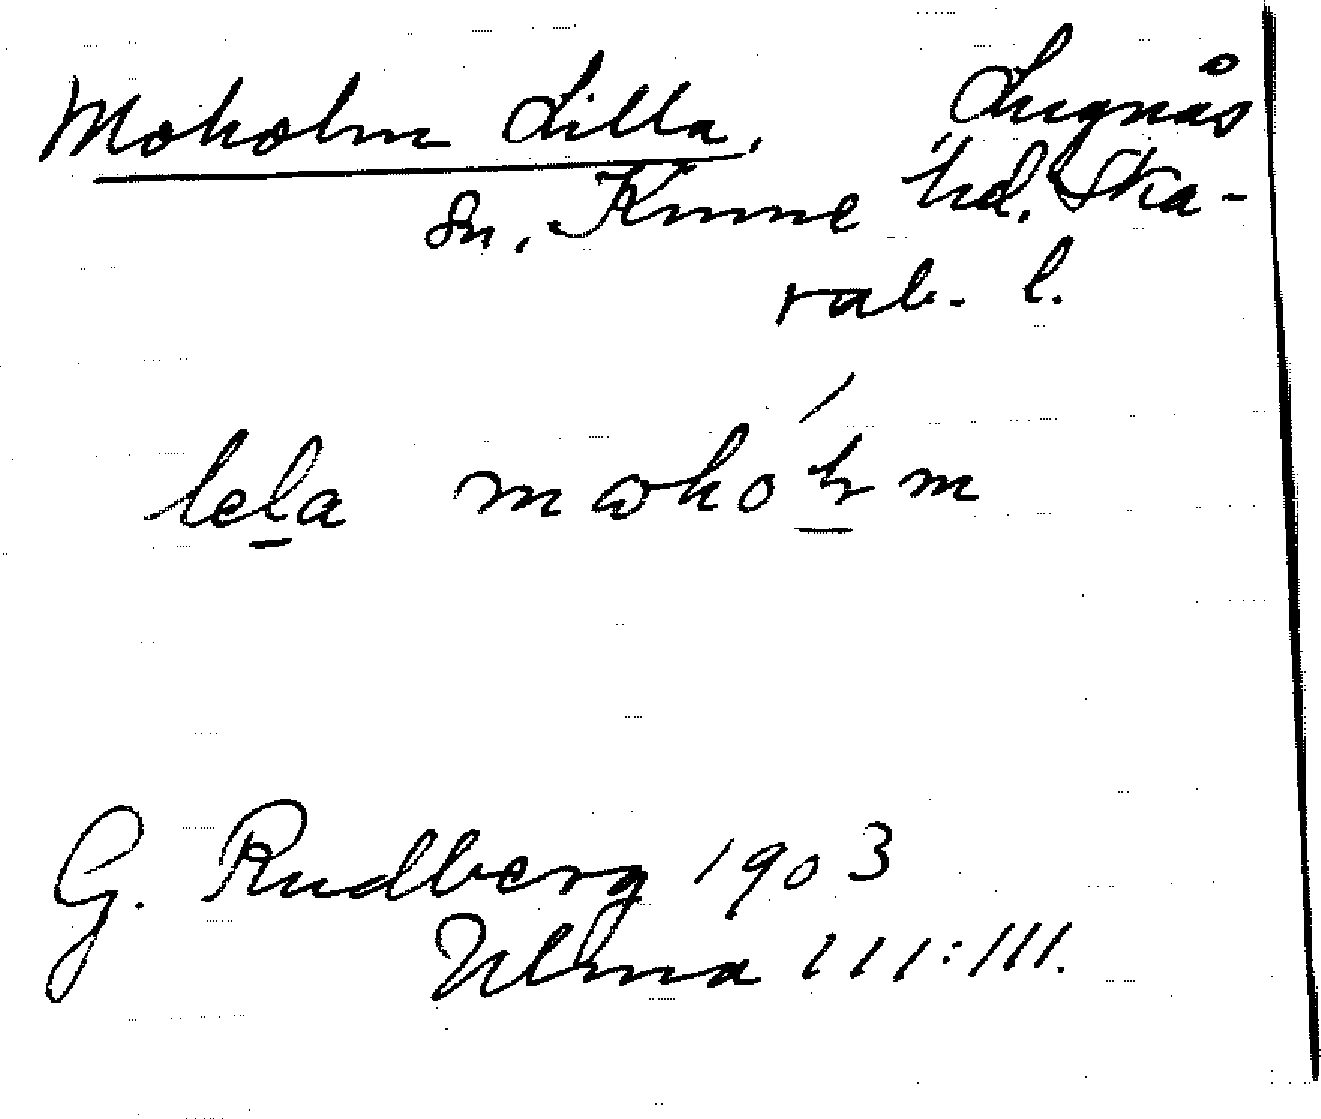 Moholm Lilla, Lugnås
sn. Kinne hd. Ska-
rab. l.
lela
G. Rudberg 1903
Ulma 111:111.